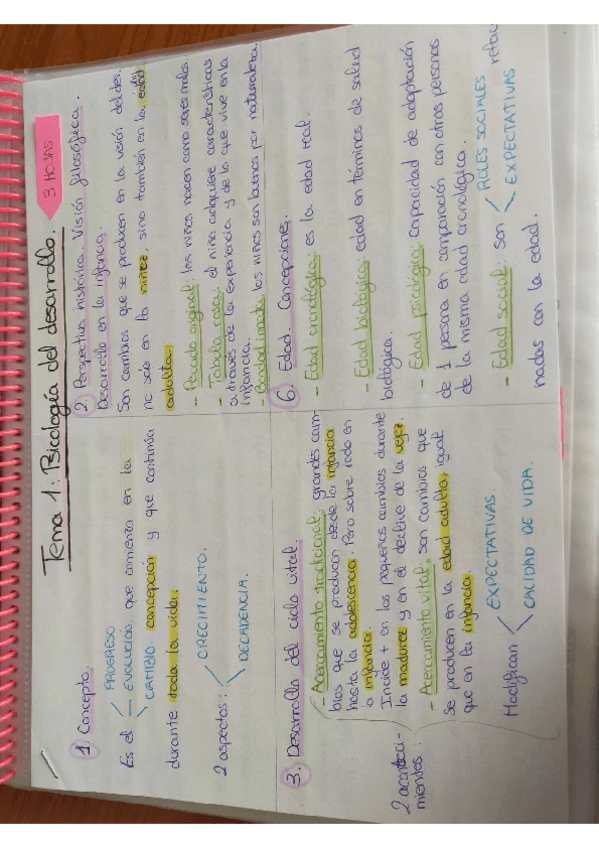 Tema 1: Psicología del desarrollo.
3 HOJAS
1. Concepto.
PROGRESO
Es el EVOLUCIÓN que comienza en la
CAMBIO concepción y que continúa
durante toda la vida.
2 aspectos:
CRECIMIENTO.
DECADENCIA.
2. Perspectiva histórica. Visión filosófica.
Desarrollo en la infancia.
Son cambios que se producen en la visión del des.
no solo en la niñez, sino también en la edad
adulta.
- Pecado original: los niños nacen como seres malos.
- Tabula rasa: el niño adquiere características
a través de la experiencia y de lo que vive en la
infancia.
- Bondad innata: los niños son buenos por naturaleza.
3. Desarrollo del ciclo vital.
2 acontecimientos:
- Acercamiento tradicional: grandes cam-
bios que se producen desde la infancia
hasta la adolescencia. Pero sobre todo en
la infancia.
Incide + en los pequeños cambios durante
la madurez y en el declive de la vejez.
- Acercamiento vital: son cambios que
se producen en la edad adulta, igual
que en la infancia.
Modifican
EXPECTATIVAS.
CALIDAD DE VIDA.
6. Edad. Concepciones.
- Edad cronológica: es la edad real.
- Edad biológica: edad en términos de salud
biológica.
- Edad psicológica: capacidad de adaptación
de 1 persona en comparación con otras personas
de la misma edad cronológica.
- Edad social: son ROLES SOCIALES
EXPECTATIVAS relacio
nadas con la edad.